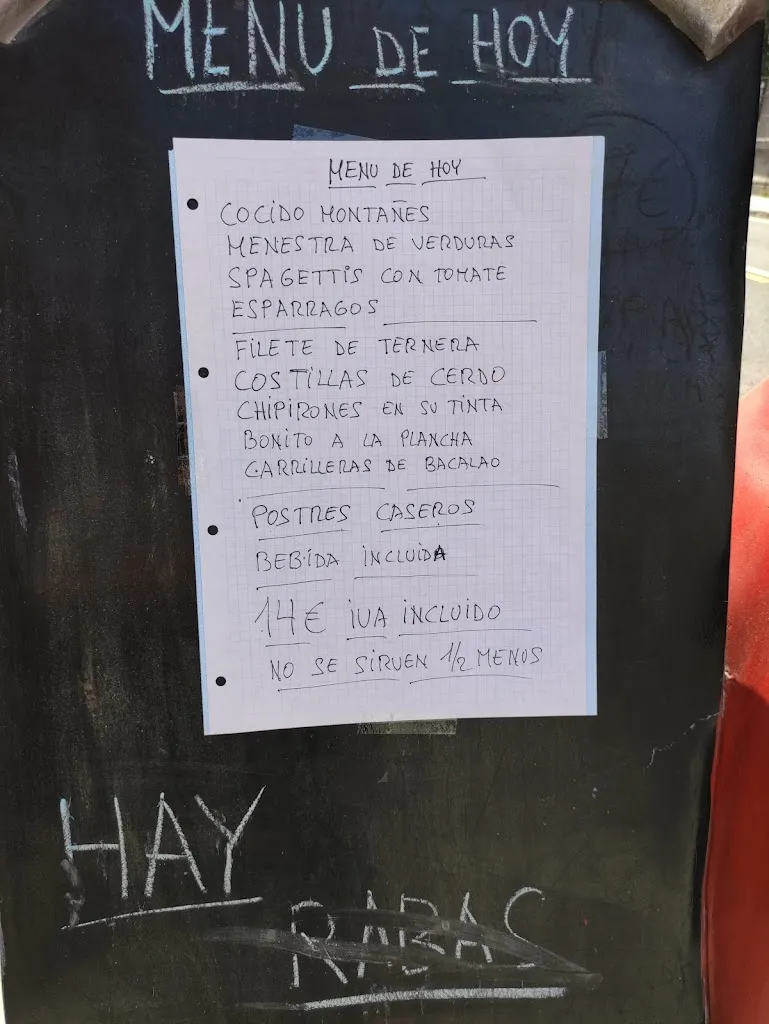 MENU DE HOY
MENU DE HOY
COCIDO MONTAÑES
MENESTRA DE VERDURAS
SPAGETTIS CON TOMATE
ESPARRAGOS
FILETE DE TERNERA
COSTILLAS DE CERDO
CHIPIRONES EN SU TINTA
BONITO A LA PLANCHA
CARRILLERAS DE BACALAO
POSTRES CASEROS
BEBIDA INCLUIDA
14€ IVA INCLUIDO
NO SE SIRVEN 1/2 MENUS
HAY
RABAS